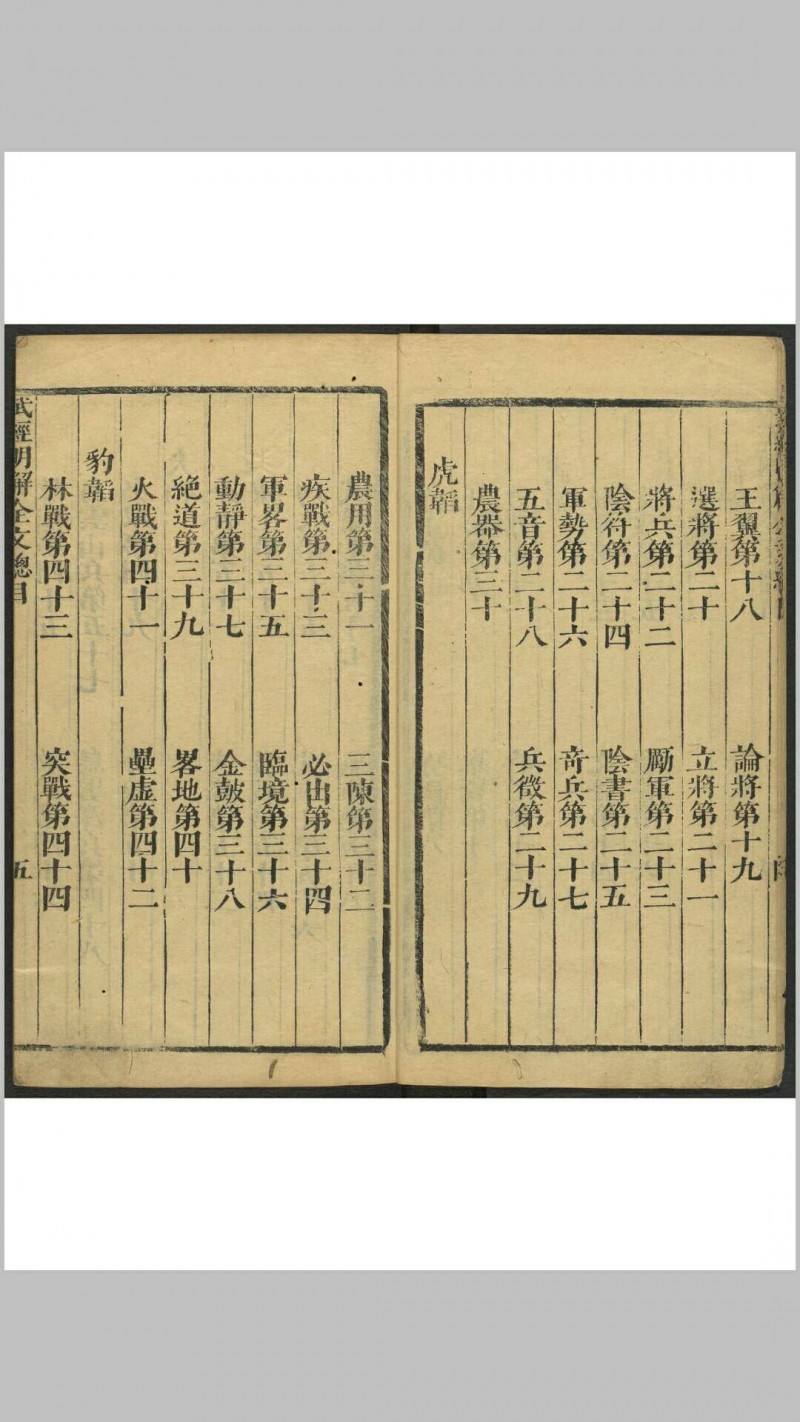 王翼第十八 論將第十九
選將第二十 立將第二十一
將兵第二十二 勵軍第二十三
陰符第二十四 陰書第二十五
軍勢第二十六 奇兵第二十七
五音第二十八 兵徵第二十九
農器第三十
虎韜
農用第三十一 三陳第三十二
疾戰第三十三 必出第三十四
軍畧第三十五 臨境第三十六
動靜第三十七 金鼓第三十八
絕道第三十九 畧地第四十
火戰第四十一 壘虛第四十二
豹韜
林戰第四十三 突戰第四十四
武經明解全文總目 五